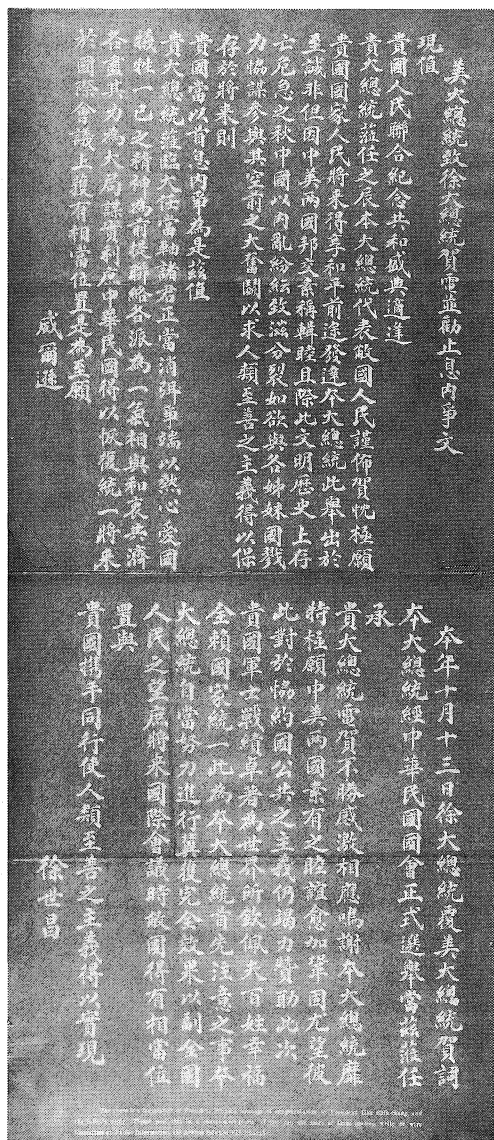 美大總統致徐大總統賀電並勸止息內爭文
現值
貴國人民聯合紀念共和盛典適逢
貴大總統蒞任之辰本大總統代表敝國人民謹佈賀忱極願
貴國國家人民將来得享和平前途發達本大總統此舉出於
至誠非但因中美兩國邦交素稱輯睦且際此文明歷史上存
亡危急之秋中國以內亂紛紜致滋分裂如欲與各姊妹國戮
力協謀參與其空前之大奮鬪以求人類至善之主義得以保
存於將来則
貴國當以首息內爭為是茲值
貴大總統蒞臨大任當軸諸君正當消弭爭端以熱心愛國
犧牲一己之精神為前提聯絡各派為一氣相與和衷共濟
各盡其力為大局謀實利庶中華民國得以恢復統一將来
於國際會議上獲有相當位置是為至願
威爾遜
本年十月十三日徐大總統覆美大總統賀詞
本大總統經中華民國國會正式選舉當茲蒞任
承
貴大總統電賀不勝感激相應鳴謝本大總統靡
特極願中美兩國素有之睦誼愈加鞏固尤望彼
此對於協約國公共之主義仍竭力贊助此次
貴國軍士戰績卓著為世界所欽佩夫百姓幸福
全賴國家統一此為本大總統首先注意之事本
大總統自當努力進行冀獲完全效果以副全國
人民之望庶將来國際會議時敝國得有相當位
置與
貴國携手同行使人類至善之主義得以實現
徐世昌